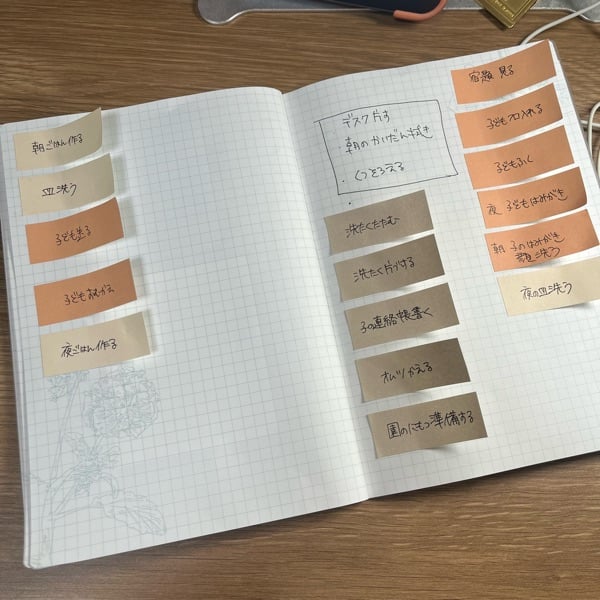 朝ごはん作る
皿洗う
子ども送る
子ども むかえ
夜ごはん作る
デスク片す
・朝のかいだん拭き
・くつそろえる
・
洗たくたたむ
洗たく片づける
子の連絡帳書く
オムツかえる
園のにもつ準備する
宿題 見る
子どもフロ入れる
子どもふく
夜 子どもはみがき
朝 子のはみがき
顔洗う
夜の皿洗う